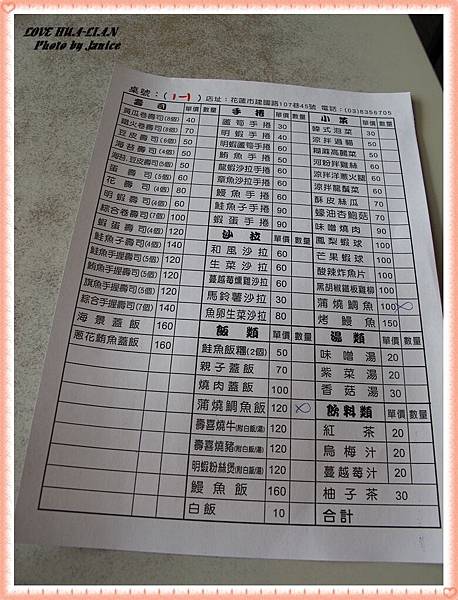 LOVE HUA-LIAN
Photo by Janice
桌號:( 1-1 ) 店址:花蓮市建國路107巷45號 電話:(03)8356705
壽司 單價 數量
黃瓜卷壽司(8個) 40
鐵火卷壽司(8個) 70
豆皮壽司(5個) 50
海苔壽司(4個) 50
海苔.豆皮壽司(5個) 50
蛋壽司(5個) 60
花壽司(4個) 80
明蝦壽司(4個) 90
綜合卷壽司(7個) 100
蝦蛋壽司(4個) 90
鮭魚子壽司(4個) 140
鮭魚手握壽司(5個) 120
鮪魚手握壽司(5個) 120
旗魚手握壽司(5個) 120
綜合手握壽司(7個) 140
海景蓋飯 160
蔥花鮪魚蓋飯 160
手捲 單價 數量
蘆筍手捲 30
明蝦手捲 60
明蝦蘆筍手捲 60
鮪魚手捲 60
龍蝦沙拉手捲 60
章魚沙拉手捲 60
鰻魚手捲 60
鮭魚子手捲 90
蝦蛋手捲 90
沙拉 單價 數量
和風沙拉 60
生菜沙拉 60
蔓越莓燻雞沙拉 60
馬鈴薯沙拉 30
魚卵生菜沙拉 80
飯類 單價 數量
鮭魚飯糰(2個) 50
親子蓋飯 70
燒肉蓋飯 100
蒲燒鯛魚飯 120
壽喜燒牛(附白飯/湯) 120
壽喜燒豬(附白飯/湯) 120
明蝦粉絲煲(附白飯/湯) 120
鰻魚飯 160
白飯 10
小菜 單價 數量
韓式泡菜 30
涼拌過貓 50
胡麻高麗菜 50
河粉拌雞絲 60
涼拌洋蔥火腿 60
涼拌龍鬚菜 60
酥皮絲瓜 70
蠔油杏鮑菇 70
味噌燒肉 90
鳳梨蝦球 100
芒果蝦球 100
酸辣炸魚片 100
黑胡椒鐵板雞柳 100
蒲燒鯛魚 100
烤鰻魚 150
湯類 單價 數量
味噌湯 20
紫菜湯 20
香菇湯 30
飲料類 單價 數量
紅茶 20
烏梅汁 20
蔓越莓汁 20
柚子茶 30
合計